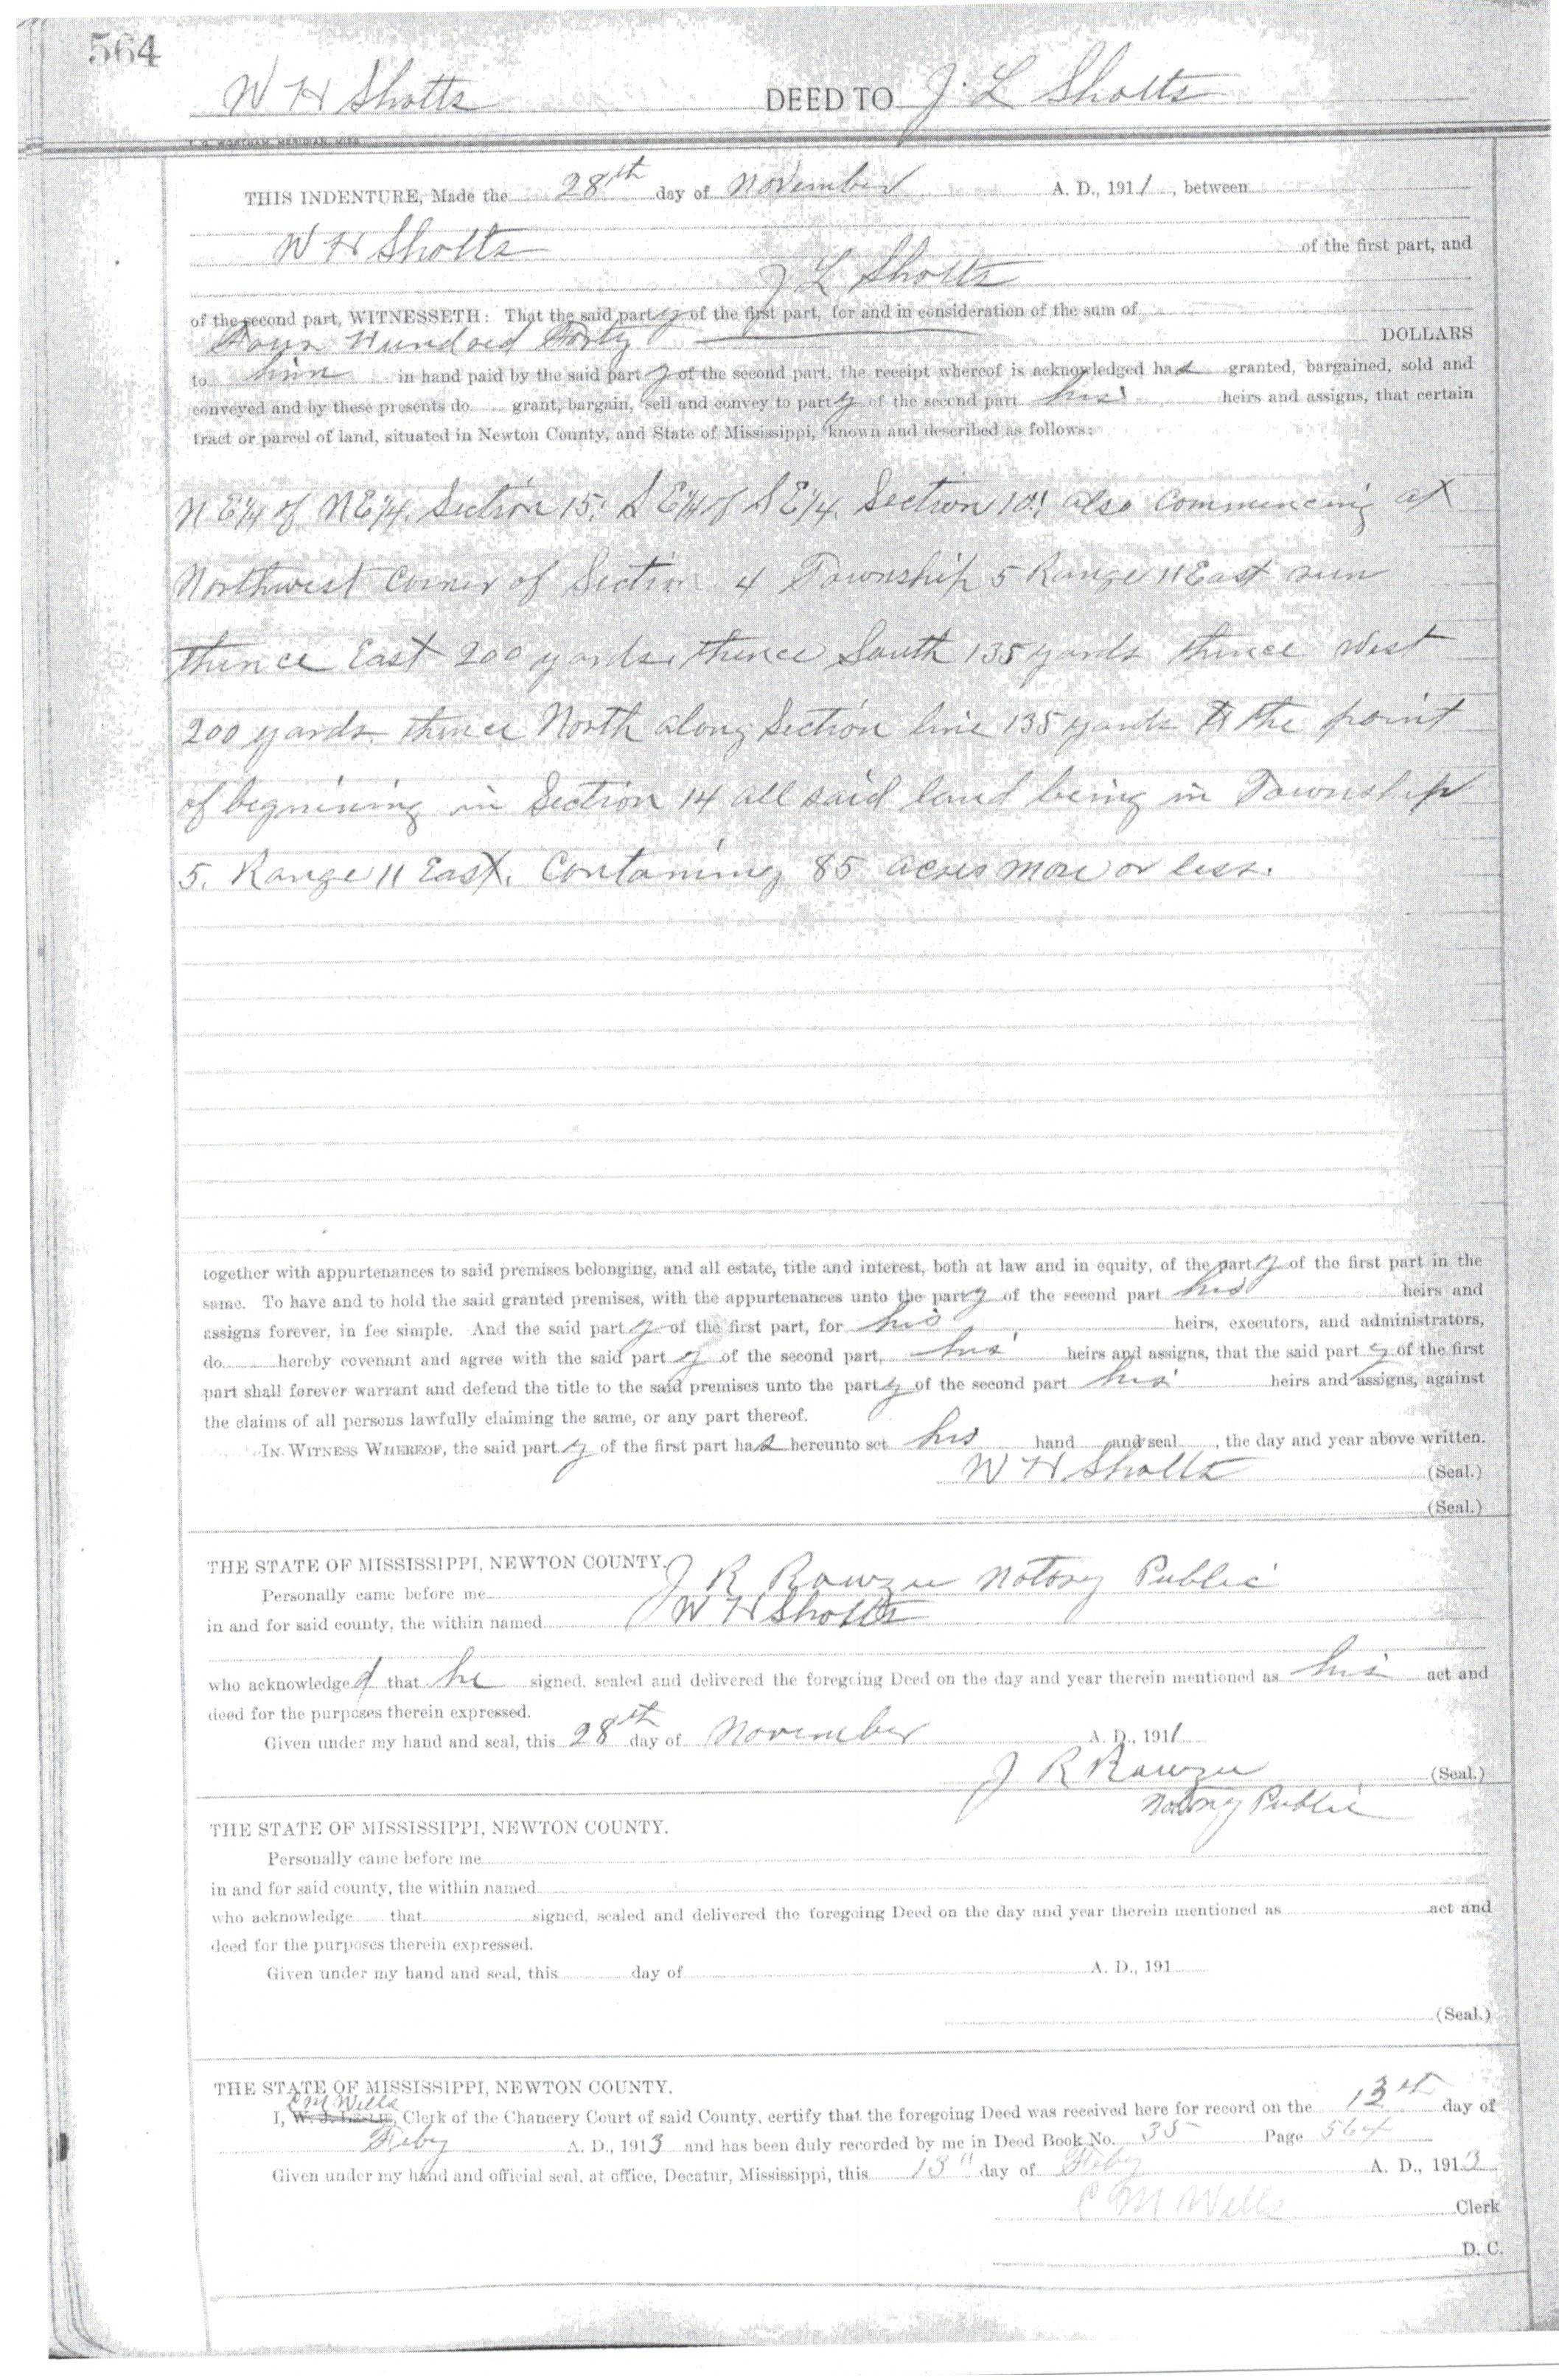 564
W H Sholts DEED TO J. L Sholts
T. G. WORTHAM, MERIDIAN, MISS.
THIS INDENTURE, Made the 28th day of November A. D., 1911, between
W H Sholts of the first part, and
J L Sholts
of the second part, WITNESSETH: That the said party of the first part, for and in consideration of the sum of
Four Hundred Forty DOLLARS
to him in hand paid by the said party of the second part, the receipt whereof is acknowledged has granted, bargained, sold and
conveyed and by these presents do grant, bargain, sell and convey to party of the second part his heirs and assigns, that certain
tract or parcel of land, situated in Newton County, and State of Mississippi, known and described as follows:
N E1/4 of N E1/4. Section 15; S E1/4 of S E1/4. Section 10; also commencing at
Northwest Corner of Section 4 Township 5 Range 11 East run
thence East 200 yards, thence South 135 yards thence West
200 yards thence North along Section line 135 yards to the point
of begnining in Section 14 all said land being in Township
5. Range 11 East. Containing 85 acres more or less.
together with appurtenances to said premises belonging, and all estate, title and interest, both at law and in equity, of the party of the first part in the
same. To have and to hold the said granted premises, with the appurtenances unto the party of the second part his heirs and
assigns forever, in fee simple. And the said party of the first part, for his heirs, executors, and administrators,
do hereby covenant and agree with the said party of the second part, his heirs and assigns, that the said party of the first
part shall forever warrant and defend the title to the said premises unto the party of the second part his heirs and assigns, against
the claims of all persons lawfully claiming the same, or any part thereof.
IN WITNESS WHEREOF, the said party of the first part has hereunto set his hand and seal, the day and year above written.
W H Sholts (Seal.)
(Seal.)
THE STATE OF MISSISSIPPI, NEWTON COUNTY.
Personally came before me J R Rowzee Notory Public
in and for said county, the within named W H Sholts
who acknowledged that he signed, sealed and delivered the foregoing Deed on the day and year therein mentioned as his act and
deed for the purposes therein expressed.
Given under my hand and seal, this 28th day of November A. D., 1911
J R Rowzee (Seal.)
Notory Public
THE STATE OF MISSISSIPPI, NEWTON COUNTY.
Personally came before me
in and for said county, the within named
who acknowledge that signed, sealed and delivered the foregoing Deed on the day and year therein mentioned as act and
deed for the purposes therein expressed.
Given under my hand and seal, this day of A. D., 191
(Seal.)
THE STATE OF MISSISSIPPI, NEWTON COUNTY.
C M Wells
I, W. J. LESLIE, Clerk of the Chancery Court of said County, certify that the foregoing Deed was received here for record on the 13th day of
Feby A. D., 1913 and has been duly recorded by me in Deed Book No. 35 Page 564
Given under my hand and official seal, at office, Decatur, Mississippi, this 13" day of Feby A. D., 1913
C M Wells Clerk
D. C.